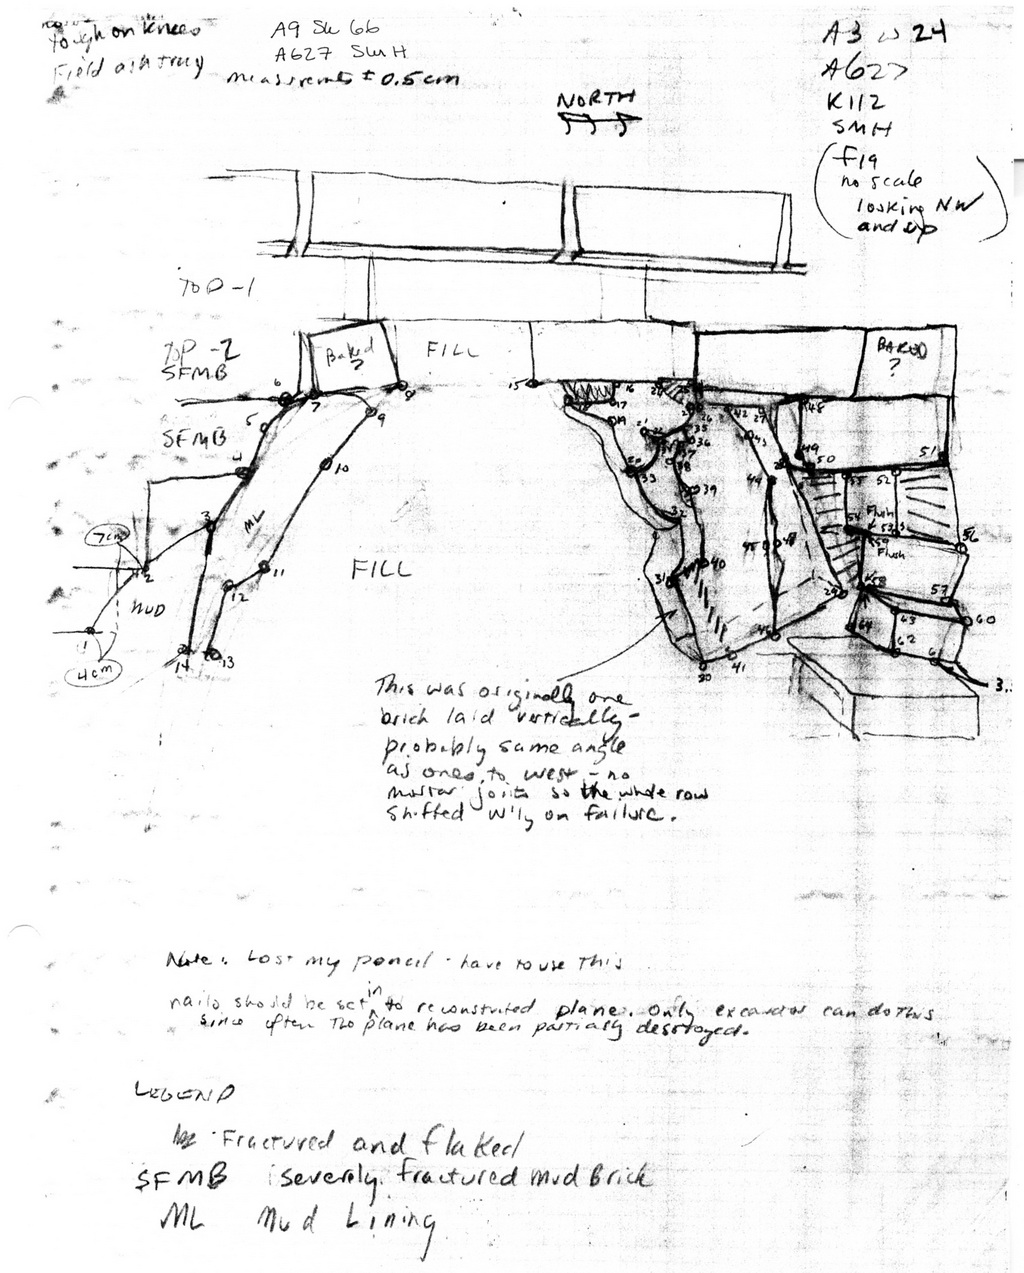 Tough on knees
Field ashtray
A9 Sk 66
A627 SMH
measurements ± 0.5cm
A3 24
A627
K112
SMH
(F19
no scale
looking NW
and up)
NORTH
TOP -1
TOP -2
SFMB
Baked
?
FILL
BAKED
?
SFMB
ML
FILL
MUD
7cm
4cm
Flush
Flush
1
2
3
4
5
6
7
8
9
10
11
12
13
14
15
16
17
19
31
32
33
35
36
38
39
40
41
42
43
44
45
46
48
49
50
51
52
56
57
58
60
62
This was originally one
brick laid vertically -
probably same angle
as ones to west - no
mortar joints so the whole row
shifted W'ly on failure.
Note: Lost my pencil - have to use this
nails should be set in to reconstructed plane. Only excavator can do this
since often the plane has been partially destroyed.
LEGEND
Fractured and flaked
SFMB severely fractured Mud Brick
ML Mud Lining